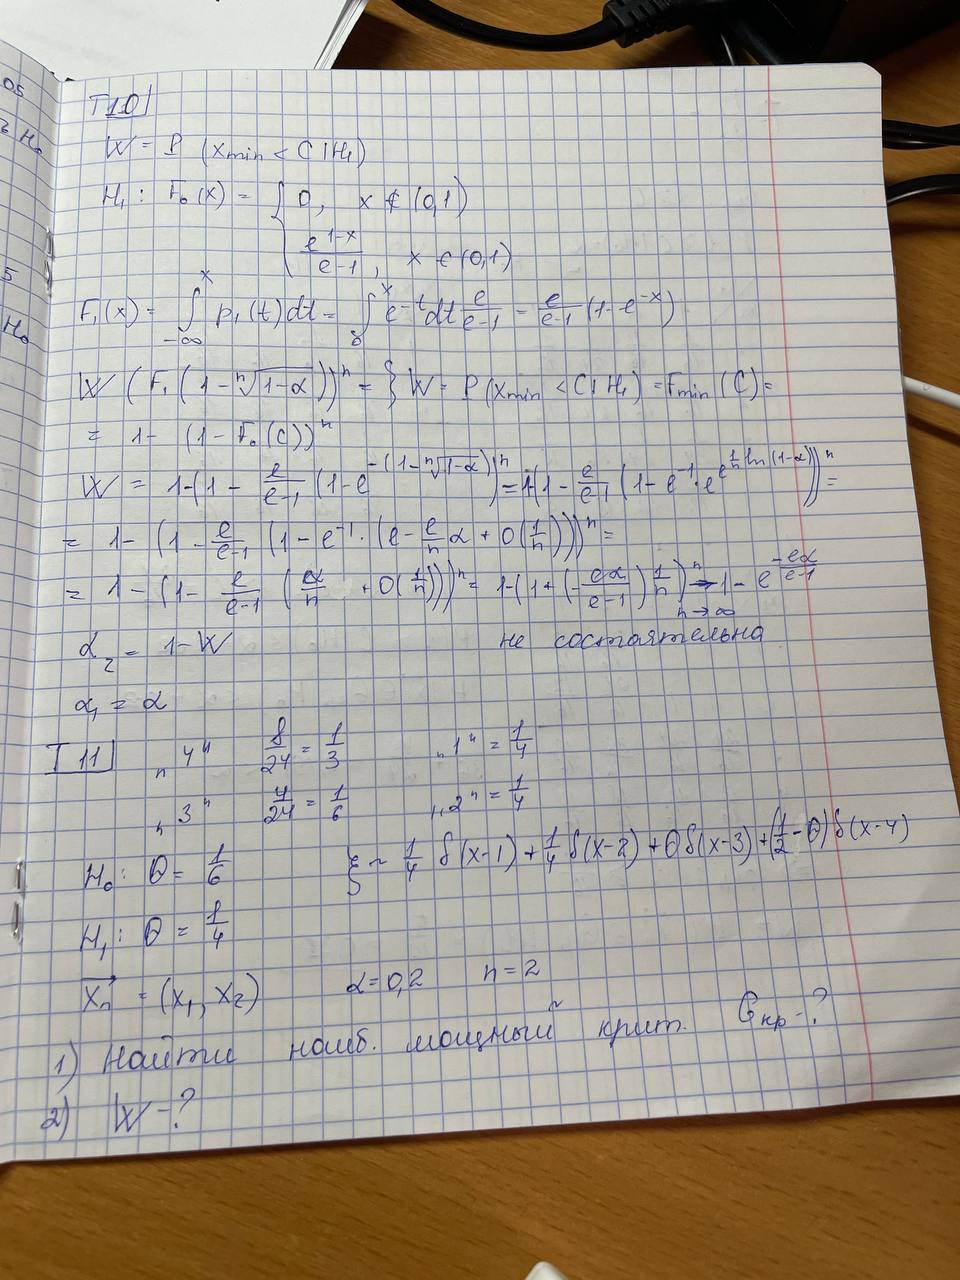 05
2 H₀
5
H₀
T10
W = P (x_min < C | H₁)
H₁ : F₀(x) = { 0, x ∉ (0,1)
e^{1-x}/(e-1), x ∈ (0,1)
F₁(x) = ∫_{-∞}^{x} p₁(t)dt = ∫_0^x e^{-t}dt e/(e-1) = e/(e-1) (1-e^{-x})
W (F₁(1-ⁿ√(1-α)))ⁿ = } W = P(x_min < C | H₁) = F_min(C) =
= 1 - (1-F₀(C))ⁿ
W = 1-(1 - e/(e-1) (1-e^{-(1-ⁿ√(1-α))})ⁿ = 1-(1 - e/(e-1) (1-e^{-1}·e^{e^{1/n ln(1-α)}}))ⁿ =
= 1 - (1 - e/(e-1) (1-e^{-1}·(e - e/n α + O(1/n))))ⁿ =
= 1 - (1 - e/(e-1) (α/n + O(1/n)))ⁿ = 1-(1+(-eα/(e-1)) 1/n)ⁿ →_{n→∞} 1 - e^{-eα/(e-1)}
α₂ = 1-W не состоятельна
α₁ = α
T11 „4" 8/24 = 1/3 „1" = 1/4
„3" 4/24 = 1/6 „2" = 1/4
H₀: θ = 1/6 ξ ~ 1/4 δ(x-1) + 1/4 δ(x-2) + θδ(x-3) + (1/2-θ)δ(x-4)
H₁: θ = 1/4
x⃗ₙ = (x₁, x₂) α=0,2 n=2
1) Найти наиб. мощный крит. G_кр-?
2) W-?